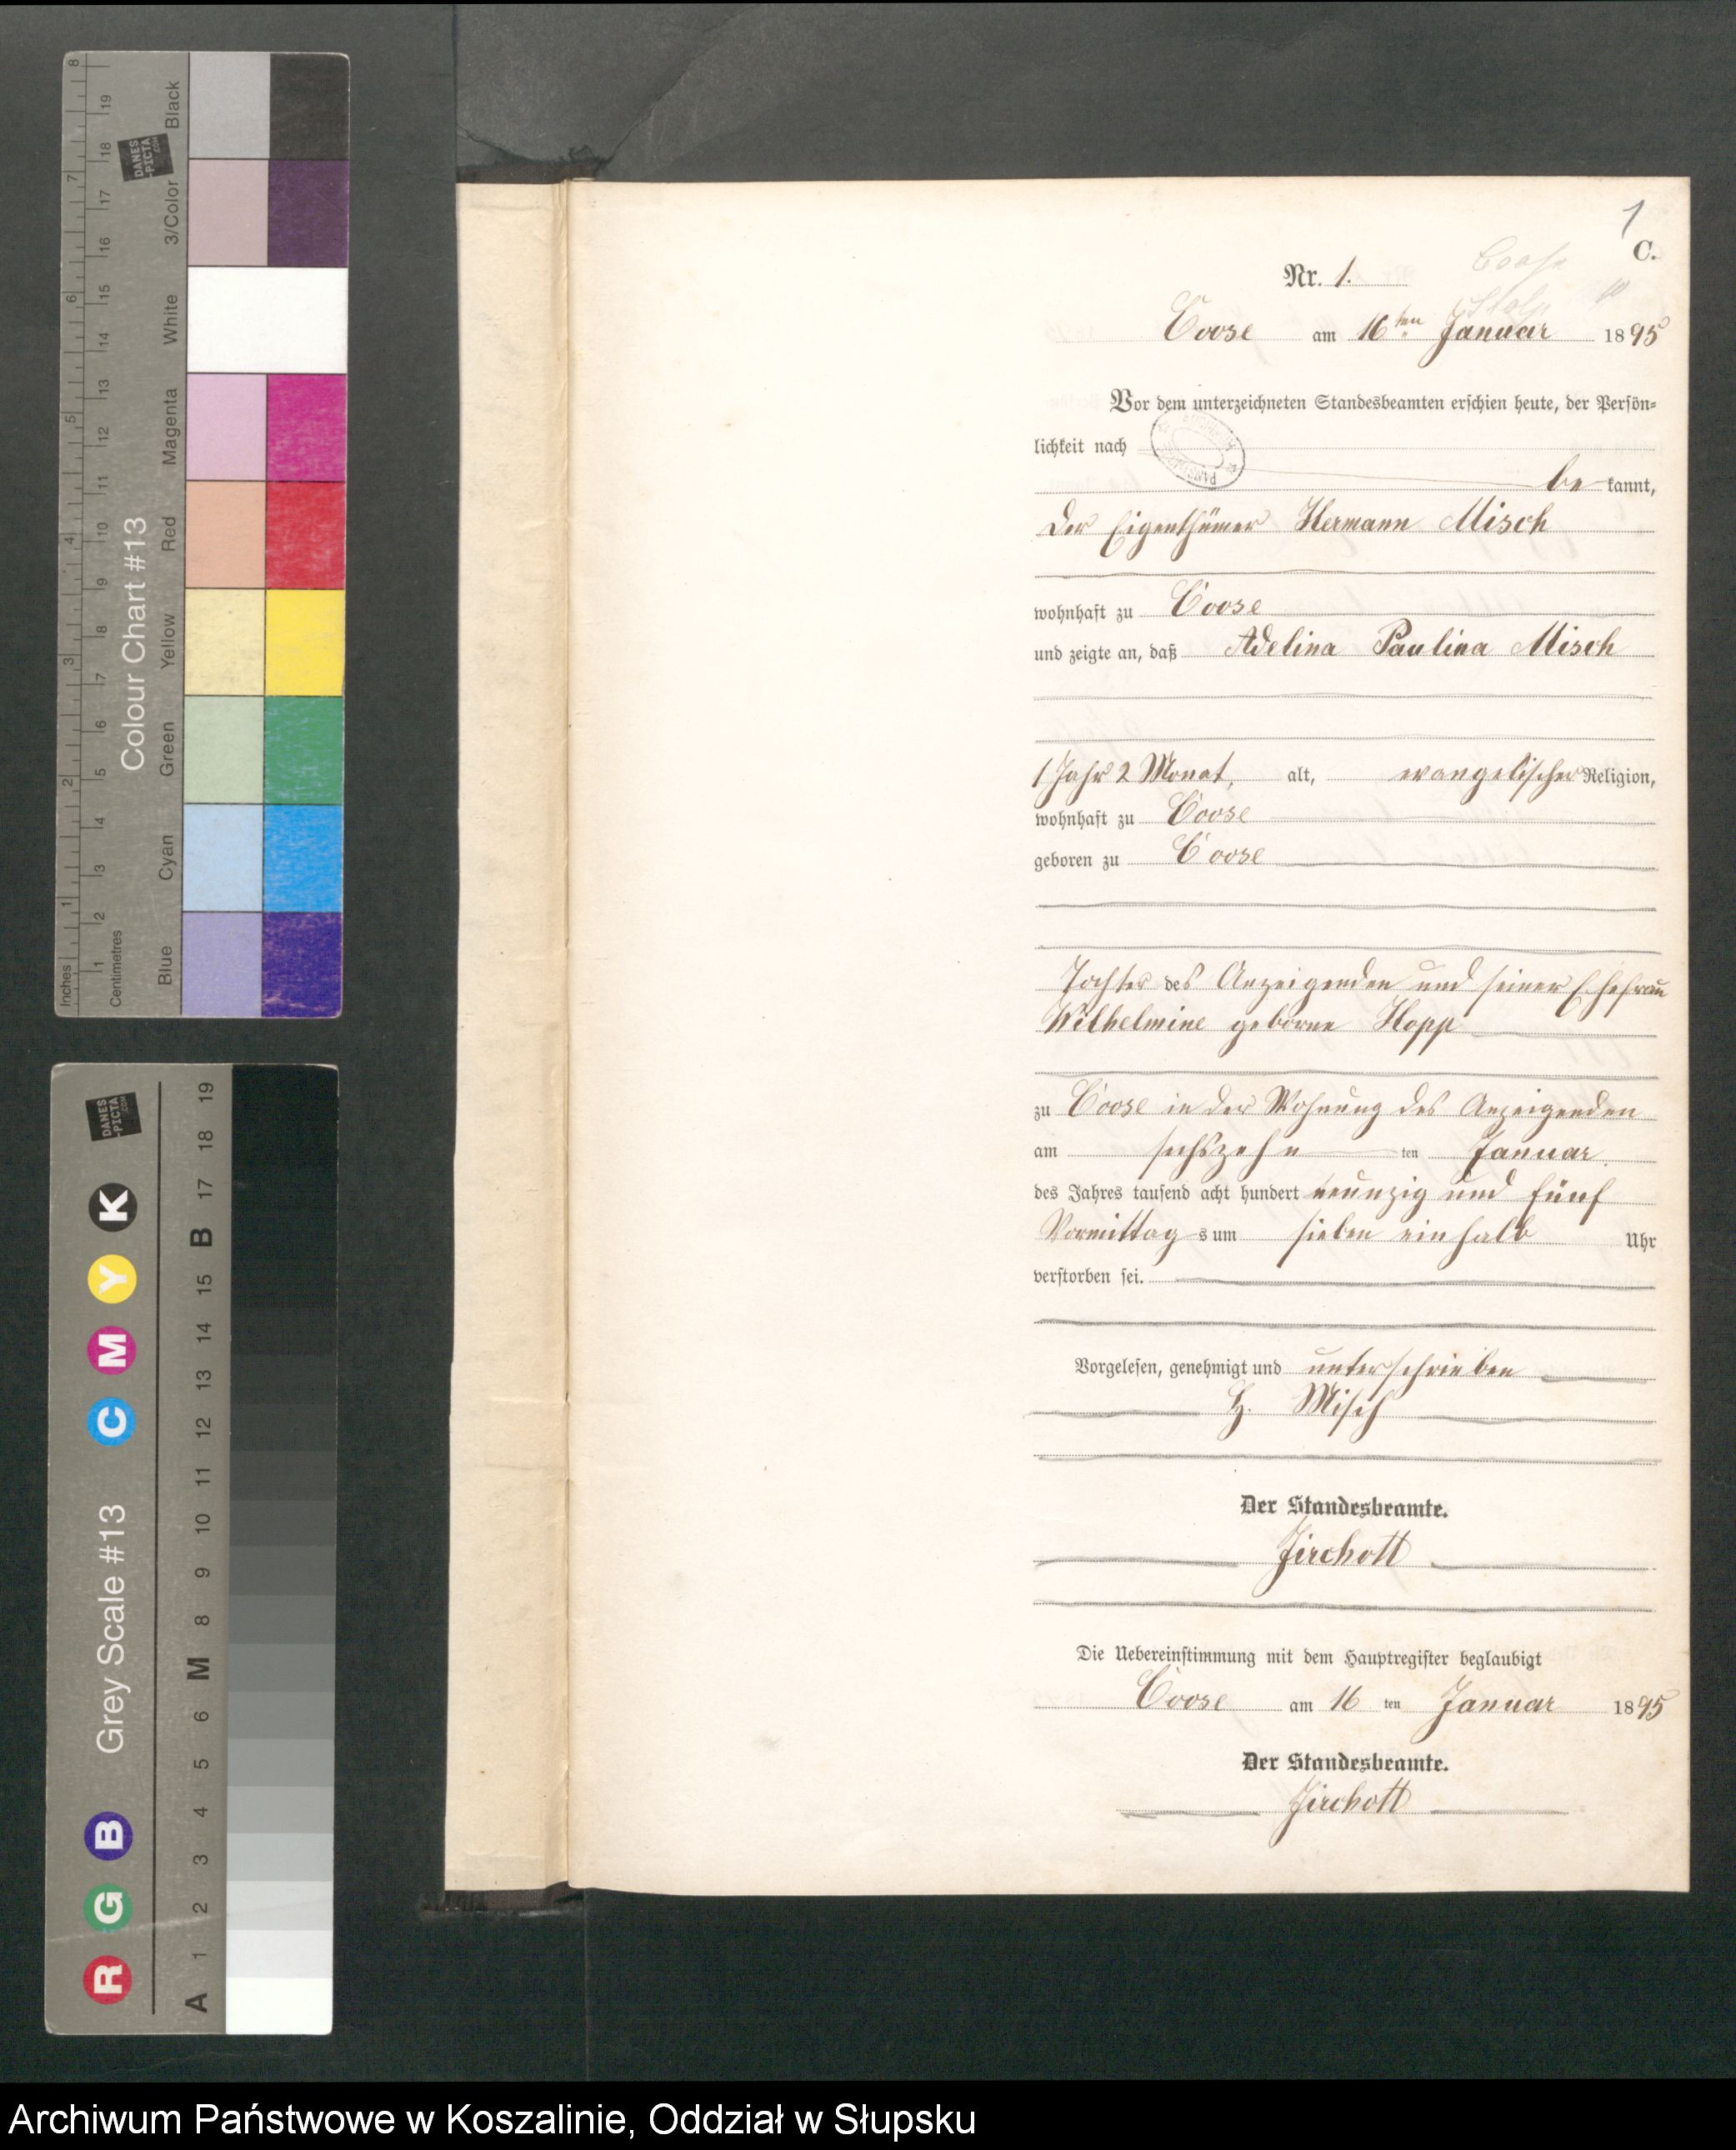 8
19
18
17
16
15
14
13
12
11
10
9
8
7
6
5
4
3
2
1
7
6
5
4
3
2
1
Inches
Centimetres
DANES
-PICTA
.COM
Colour Chart #13
Black
3/Color
White
Magenta
Red
Yellow
Green
Cyan
Blue
DANES
-PICTA
.COM
Grey Scale #13
R G B C M Y K
A 1 2 3 4 5 6 M 8 9 10 11 12 13 14 15 B 17 18 19
1
C.
Nr. 1.
Coose am 16ten Januar 1895
Vor dem unterzeichneten Standesbeamten erschien heute, der Persön-
lichkeit nach
be kannt,
der Eigenthümer Hermann Misch
wohnhaft zu Coose
und zeigte an, daß Adelina Paulina Misch
1 Jahr 2 Monat, alt, evangelischer Religion,
wohnhaft zu Coose
geboren zu Coose
Tochter des Anzeigenden und seiner Ehefrau
Wilhelmine geborne Hopp
zu Coose in der Wohnung des Anzeigenden
am sechszehn ten Januar
des Jahres tausend acht hundert neunzig und fünf
Vormittag s um sieben einhalb Uhr
verstorben sei.
Vorgelesen, genehmigt und unterschrieben
H. Misch
Der Standesbeamte.
Zirchott
Die Uebereinstimmung mit dem Hauptregister beglaubigt
Coose am 16 ten Januar 1895
Der Standesbeamte.
Zirchott
Archiwum Państwowe w Koszalinie, Oddział w Słupsku